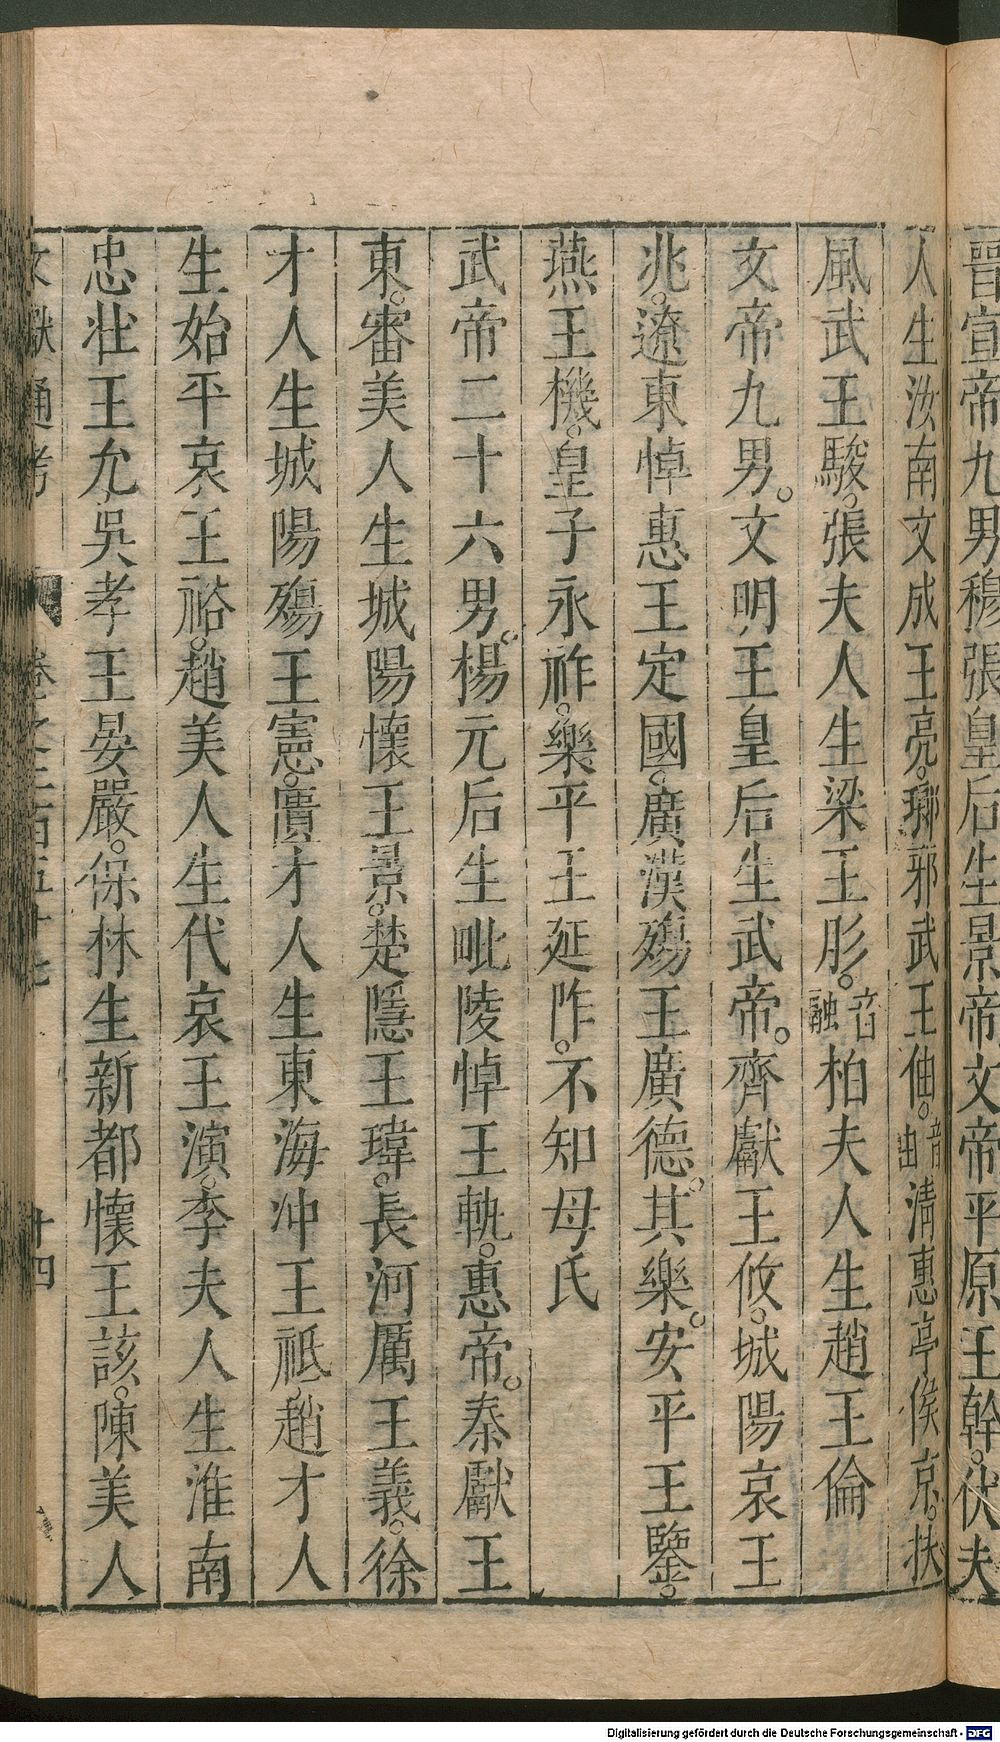 晉宣帝九男穆張皇后生景帝文帝平原王幹。伏夫
人生汝南文成王亮。瑯邪武王伷。音由清惠亭侯京。扶
風武王駿。張夫人生梁王肜。音融柏夫人生趙王倫
文帝九男。文明王皇后生武帝。齊獻王攸。城陽哀王
兆。遼東悼惠王定國。廣漢殤王廣德。其樂。安平王鑒。
燕王機。皇子永祚。樂平王延祚。不知母氏
武帝二十六男。楊元后生毗陵悼王軌。惠帝。秦獻王
東。審美人生城陽懷王景。楚隱王瑋。長河厲王義。徐
才人生城陽殤王憲。匱才人生東海沖王祗。趙才人
生始平哀王裕。趙美人生代哀王演。李夫人生淮南
忠壯王允。吳孝王晏。嚴。保林生新都懷王該。陳美人
文獻通考 卷之二百五十七 十四
Digitalisierung gefördert durch die Deutsche Forschungsgemeinschaft - DFG